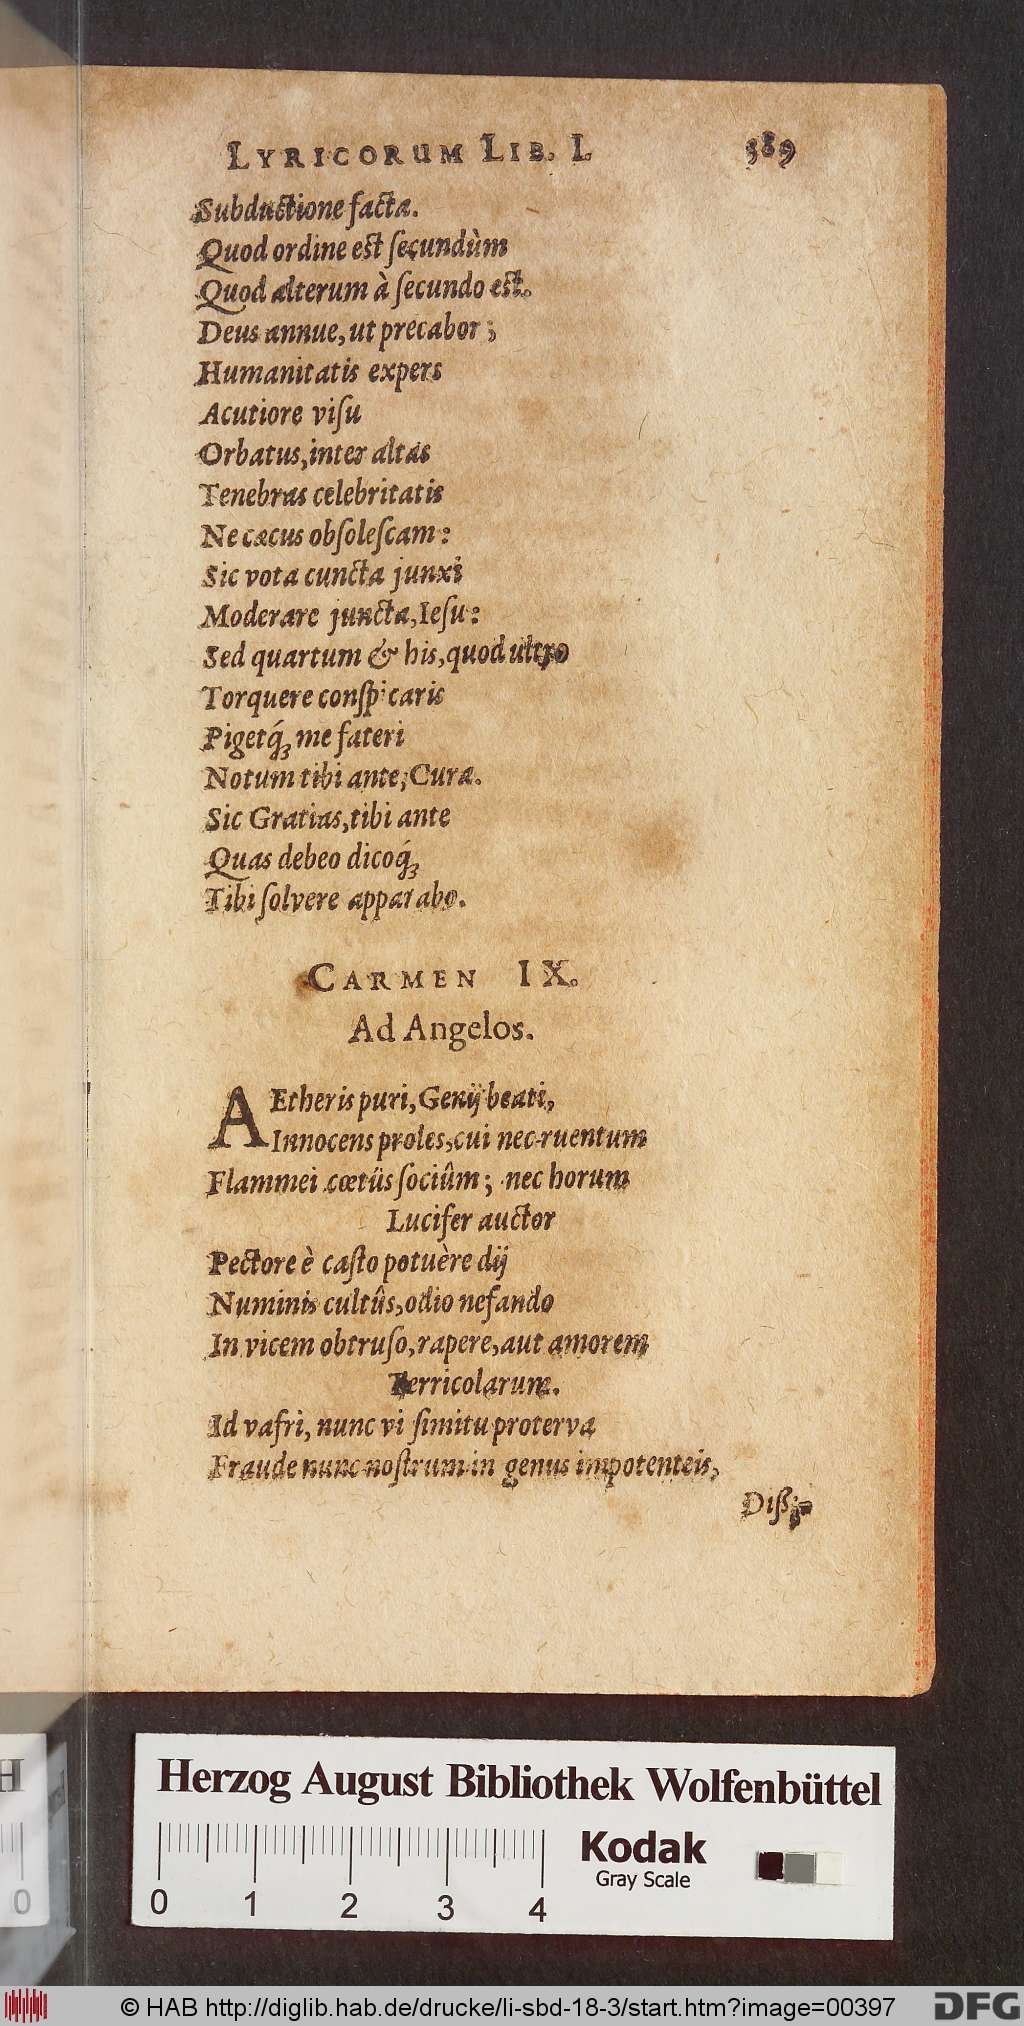 LYRICORUM LIB. I. 389
Subductione facta.
Quod ordine est ſecundùm
Quod alterum à ſecundo est.
Deus annue, ut precabor;
Humanitatis expers
Acutiore viſu
Orbatus, inter altas
Tenebras celebritatis
Ne cæcus obſoleſcam:
Sic vota cuncta junxi
Moderare juncta, Ieſu:
Sed quartum & his, quod ultro
Torquere conſpicaris
Pigetq́ꝫ me fateri
Notum tibi ante; Curæ.
Sic Gratias, tibi ante
Quas debeo dicoq́ꝫ
Tibi ſolvere apparabo.
CARMEN IX.
Ad Angelos.
AEtheris puri, Genij beati,
Innocens proles, cui nec ruentum
Flammei cœtüs ſociûm; nec horum
Lucifer auctor
Pectore è caſto potuère dij
Numinis cultûs, odio nefando
In vicem obtruſo, rapere, aut amorem
Terricolarum.
Id vafri, nunc vi ſimitu proterva
Fraude nunc noſtrum in genus impotenteis,
Herzog August Bibliothek Wolfenbüttel
0 1 2 3 4
Kodak
Gray Scale
H
0
© HAB http://diglib.hab.de/drucke/li-sbd-18-3/start.htm?image=00397
DFG